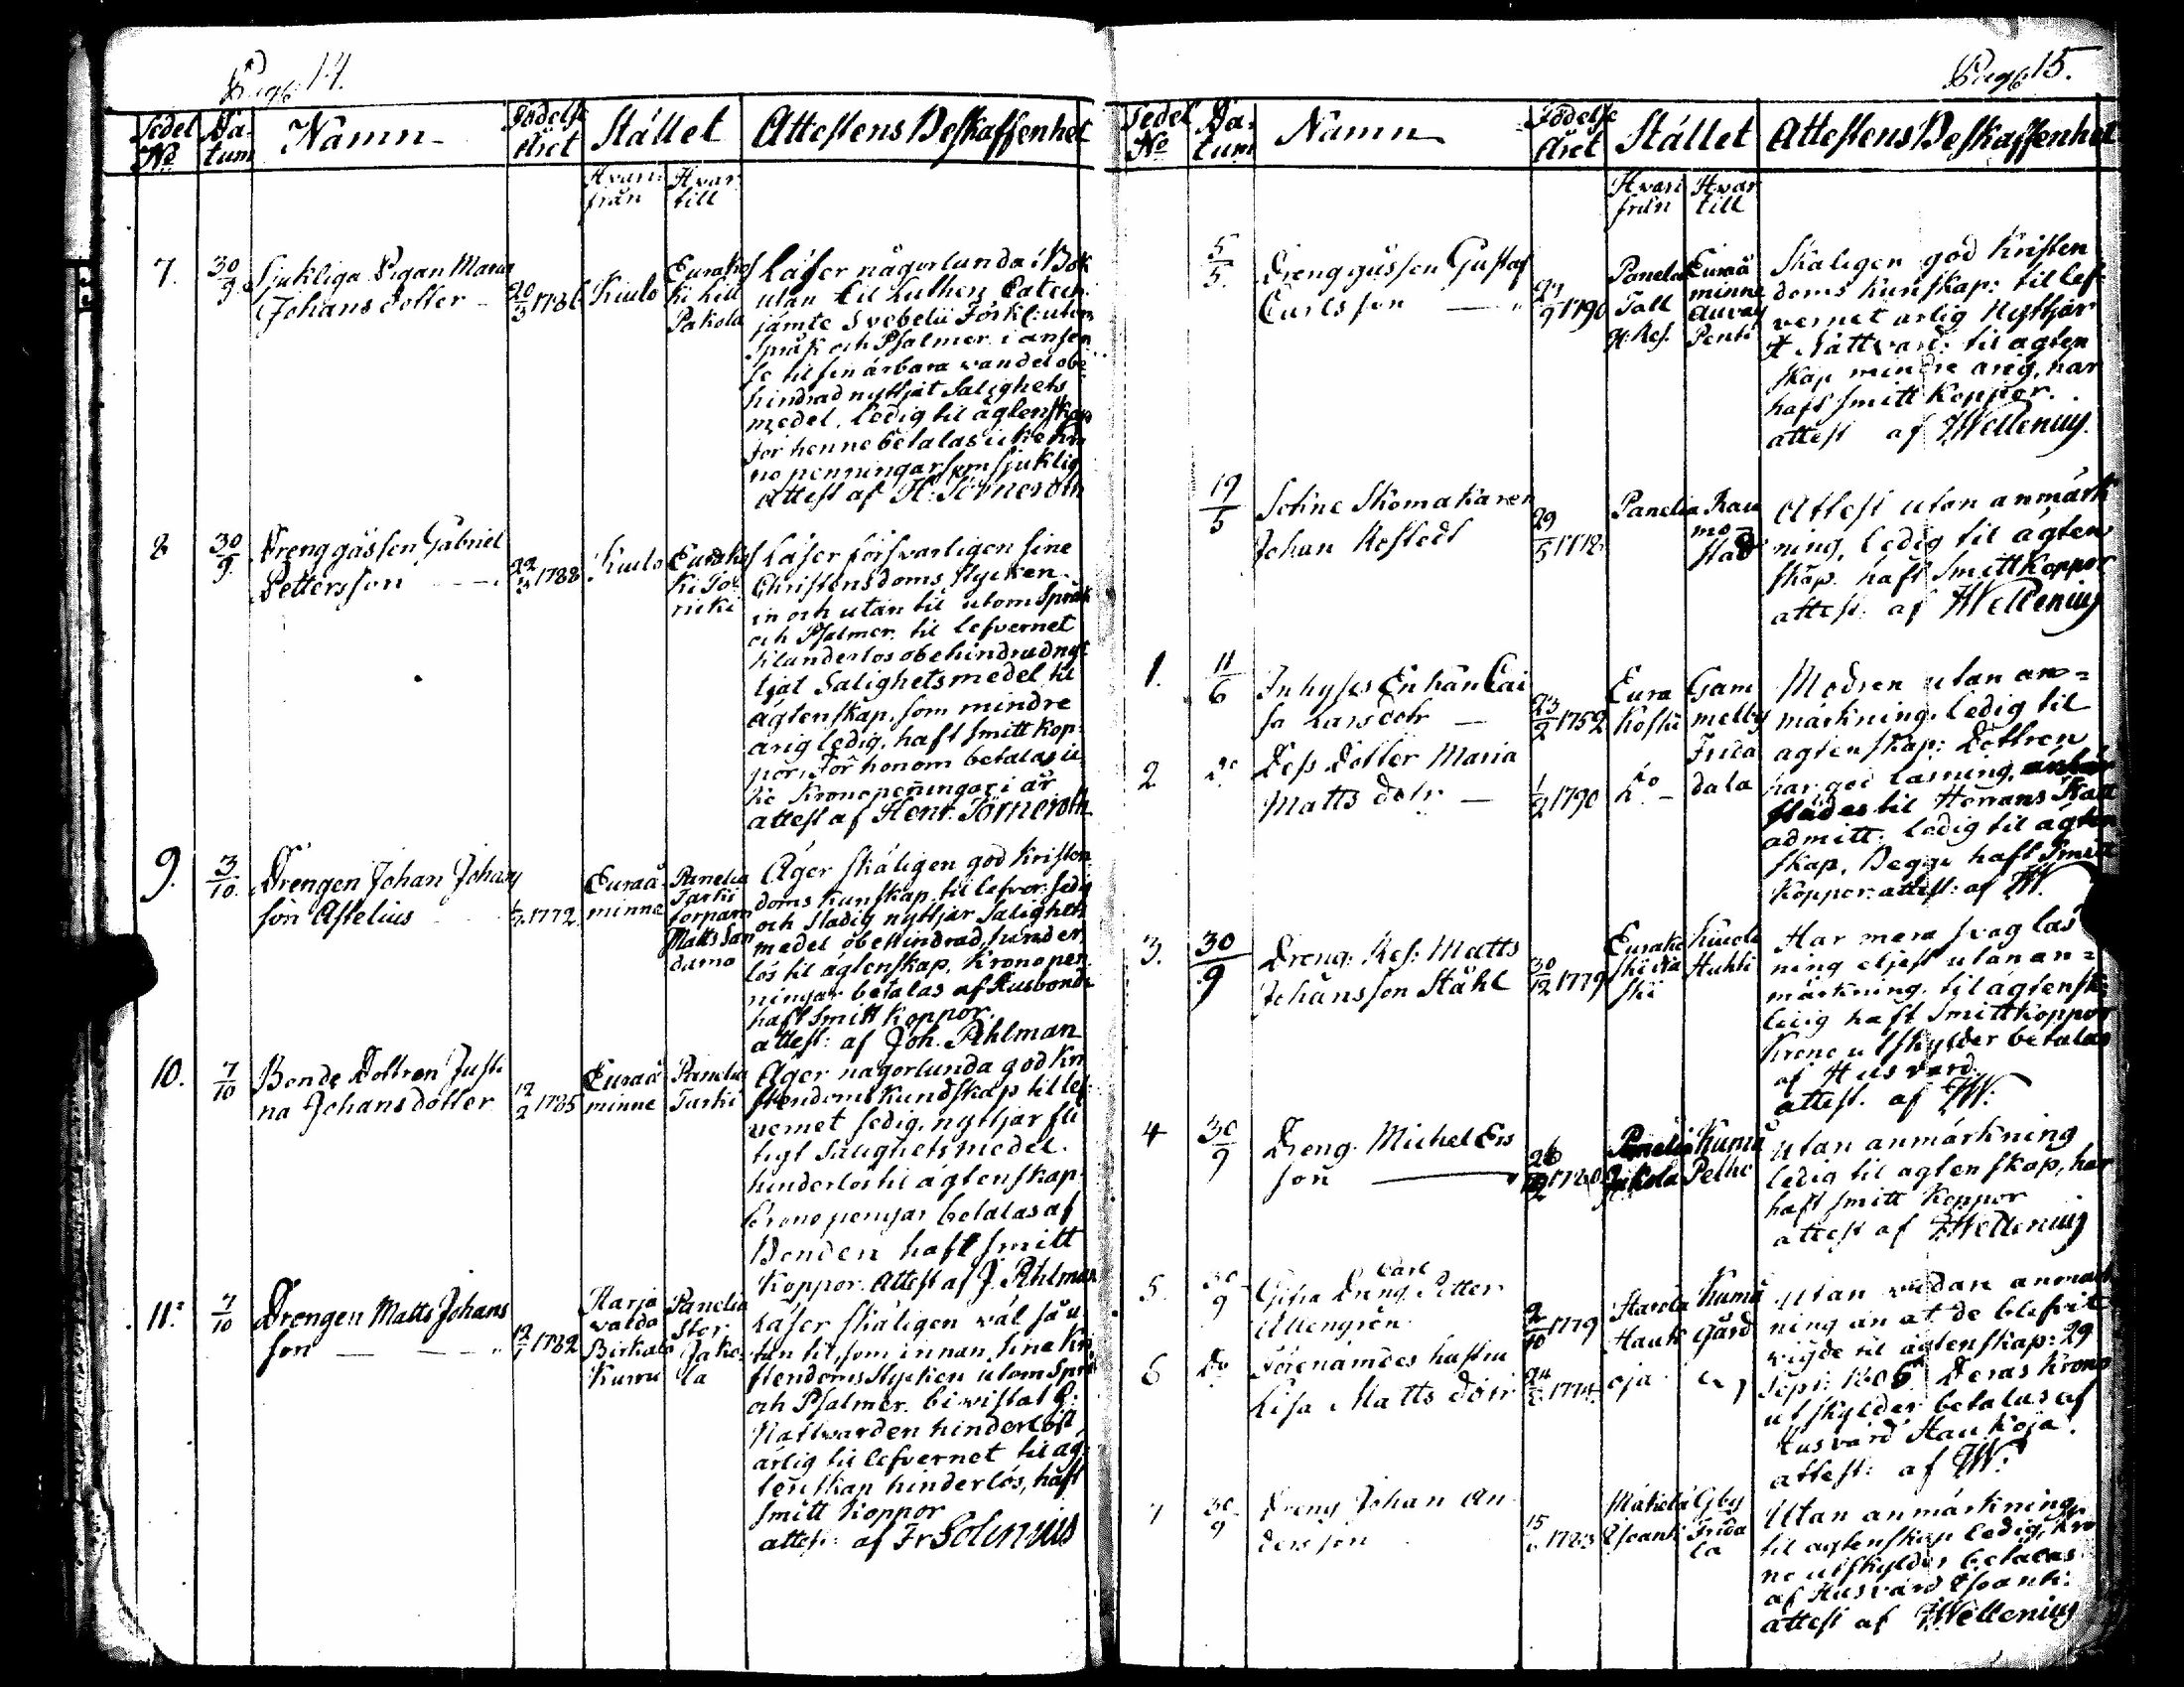 Pag: 14.
Sedel No
Da-tum
Namn
Födelse Året
Stället
Attestens Beskaffenhet
Hvari från
Hvar till
7.
30/9
Sjukliga Pigan Maria
Johans dotter
20/3 1786
Kiulo
Eurakos
ki Lill
Pakola
Läser någorlunda i Bok
utan til Lutheri Catech:
jämte Svebelii Förkl: utom
Språk och Psalmer. i anse
se til sin ärbara vandel obe
hindrad nyttjat Salighets
medel. ledig til ägtenskap
För henne betalas icke Kro
no penningar som sjuklig
Attest af H: Törneroth
8
30/9.
Drenggåssen Gabriel
Pettersson
1788
Kiulo
Eurakos
ki
Läser försvarligen sine
Christensdoms stycken
in och utan til utom Språk
och Psalmer. til lefvernet
klanderlos obehindrad nyt
tjat Salighetsmedel til
ägtenskap, som mindre
arig ledig, haft smitt kop-
por, För honom betalas ic
ke Kronopeningar i år
attest af Henr. Törneroth
9.
3/10.
Drengen Johan Johans
son Astelius
1772
Euraå
minne
Panelia
Tarki
torparn
Matts San
damo
Äger skäligen god Kristen
doms kunskap, til lefver: sedig
och stadig nyttjar Salighets
medel obehindrad, hinder
lös til ägtenskap, Kronopen
ningar betalas af Husbonde
haft smitt koppor.
attest: af Joh. Pihlman
10.
7/10
Bonde Dottren Justi
na Johans dotter
12/2 1785
Euraå
minne
Panelia
Tarki
Äger nagorlunda god Kri
stendoms Kundskap til lef
vernet sedig, nyttjar fli
tigt Salighetsmedel.
hinderlos til ägtenskap.
Crono pengar betalas af
Bonden haft smitt
Koppor. Attest af J. Pihlman
11.
7/10
Drengen Matts Johans
son
1782
Harja
valda
Birkala
Kurru
Panelia
Stor
Jako
la
Läser skäligen väl så u
tan til, som innan, sina Kri
stendoms Stycken utom Språ
och Psalmer. bivistat H:
Nattvarden hinderlöst
ärlig til lefvernet til äg
tenskap hinderlös, haft
smitt koppor
attest: af Fr Solenius
Pag: 15.
Sedel No
Da-tum
Namn
Födelse Året
Stället
Attestens Beskaffenhet
Hvari från
Hvar till
5/5.
Drenggåssen Gustaf
Carlsson
1790
Panelia
Tall
Euraå
minne
Penti
Skäligen god Kristen
doms kunskap: til lef
vernet arlig Nyttjar
H Nattvard: til ägten
skap mindre arig, har
haft smitt koppor.
attest af JWellenius.
19/5
Sokne Skomakaren
Johan
29/5
Panelia
Rau
mo
stad
Attest utan anmärk
ning, ledig til ägten
skap. haft Smittkoppor
attest: af JWellenius
1.
11/6
Inhyses Enkan Cai
sa Larsdotr
23/2 1752
Eura
koski
Gam
melby
Frida
Modren utan an=
märkning. ledig til
agtenskap: Dottren
har god läsning,
til Herrans Natt
admitt: ledig til ägten
skap, Begge haft Smitt
Koppor: attest: af JW.
2
Do
Dess Dotter Maria
Matts dotr
1/2 1790
Do
dala
3.
30/9
Dreng: Res: Matts
Johansson Ståhl
30/12 1779
Eurako
ski
Huhti
Har mera svag läs
ning eljest utan an=
märkning. til ägtensk:
ledig haft Smittkoppor
Krono utskylder betalas
af Husvärd.
attest. af JW:
4
30/9
Dreng. Michel Ers
son
Panelia
Jakola
Kumo
Utan anmärkning
ledig til agtenskap, har
haft smitt koppor
attest af JWellenius
5.
30/9
Gifta Dräng Carl Petter
2/10 1779
Hauk
oja
Kumo
Gård
Utan vidare anmärk
ning än at de blefvit
vigde til ägtenskap: 29
Sept: 1805 Deras Krono
utskylder betalas af
Husvärd Haukoja.
attest: af JW:
6
Do
Förenämdes hustru
Lisa Matts dotr
7
30/9
Dreng Johan An
dersson
1783
Gby
Frida
la
Utan anmärkning
til agtenskap ledig, Kro
no utskylder betalas
af Husvärd
attest af JWellenius